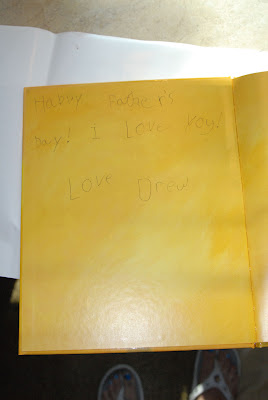 Habuy Father's
Day! I Love You!
Love Drew